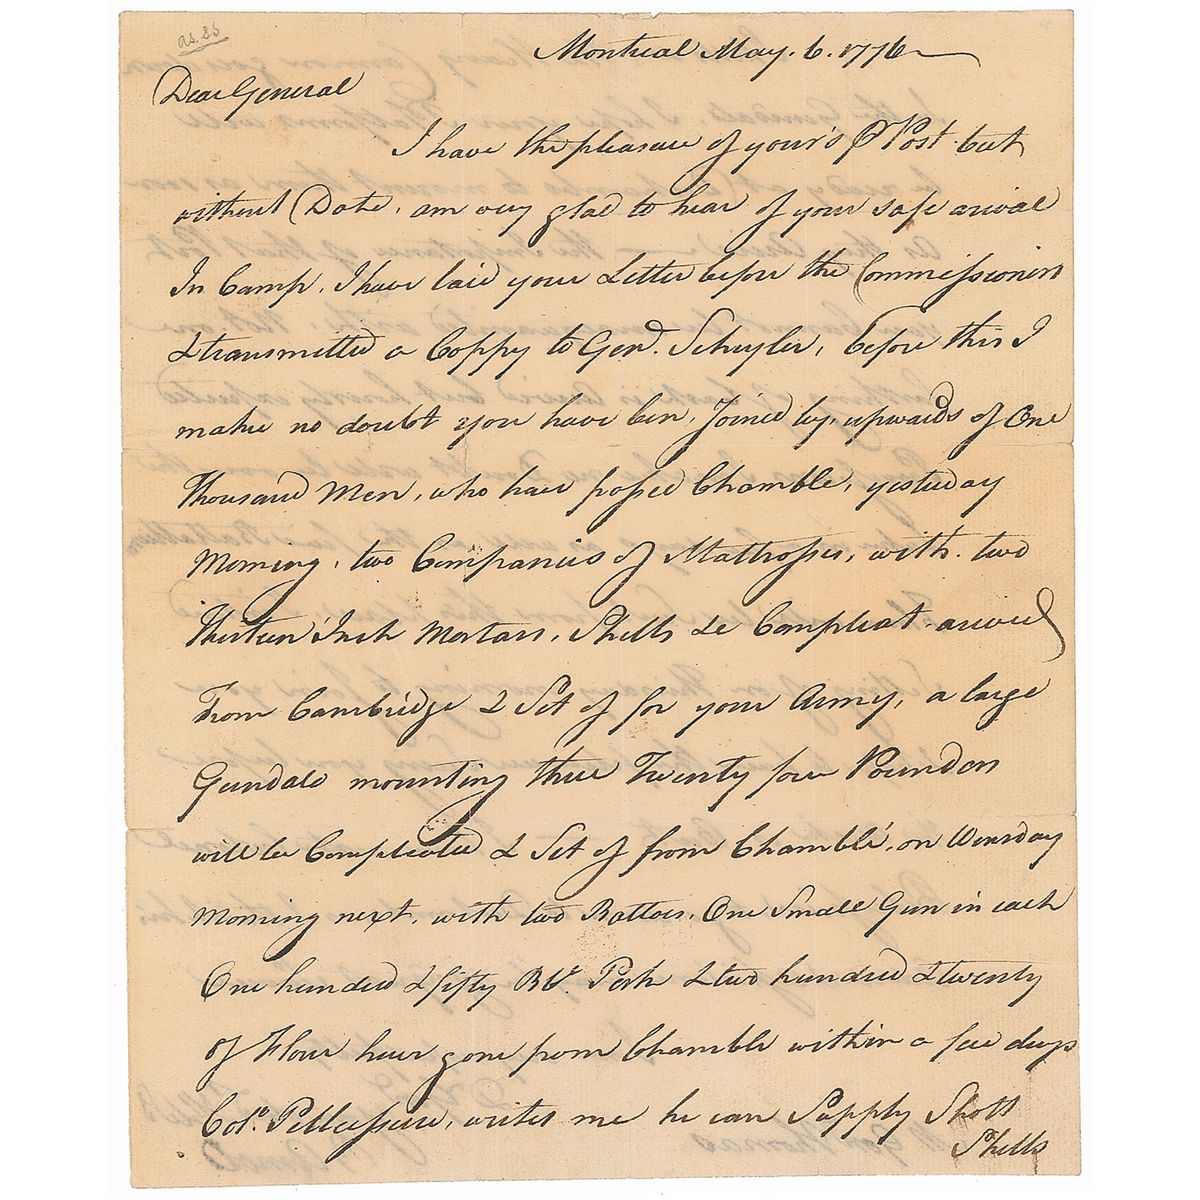 as. 85
Montreal May. 6. 1776
Dear General
I have the pleasure of your's P Post. but
without Date, am very glad to hear of your safe arival
In Camp, I have laid your Letter before the Commissioners
& transmitted a Coppy to Genl. Schuyler, before this I
make no doubt you have ben, Joined by, upwards of One
Thousand Men, who have passed Chamble, yesterday
Morning, two Companies of Mattrosses, with. two
Thirteen Inch Mortars, Shells &c Compleat. arived
From Cambridge & Set of for your Army, a large
Gundalo mounting three Twenty four Pounders
will be Compleated & Set of from Chamblé, on Wensday
Morning next, with two Battoes, One Small Gun in each
One hundred & fifty Bls. Pork & two hundred & twenty
of Flour have gone from Chamble within a few days
Colo. Pellissiere, writes me he can Supply Shott
Shells